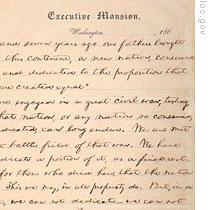 Executive Mansion,
Washington, , 186
and seven years ago our fathers brought
this continent, a new nation, conceive
and dedicated to the proposition that
are created equal"
are engaged in a great civil war, testing
that nation, or any nation so conceive
dicated, can long endure. We are met
battle field of that war. We have
dicate a portion of it, as a final rest
for those who died here, that the nation
This we may, in all propriety do. But, in a
we can not dedicate we can not
loc.gov